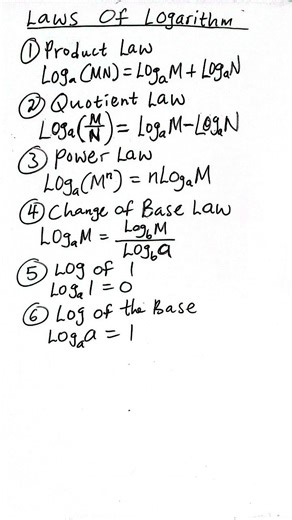 Laws Of Logarithm
① Product Law
Logₐ(MN) = LogₐM + LogₐN
② Quotient Law
Logₐ(M/N) = LogₐM - LogₐN
③ Power Law
Logₐ(Mⁿ) = nLogₐM
④ Change of Base Law
LogₐM = Log_bM / Log_ba
⑤ Log of 1
Logₐ1 = 0
⑥ Log of the Base
Logₐa = 1